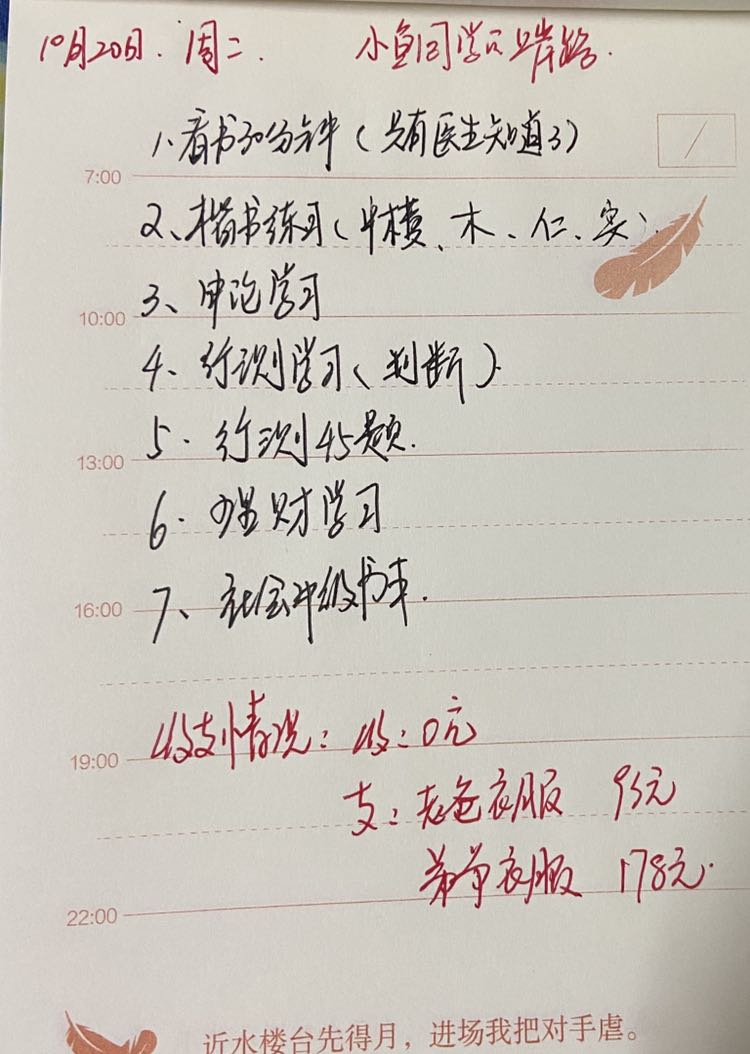 10月20日. 周二. 小鱼同学只上岸路.
1、看书30分钟(只有医生知道3)
7:00
2、楷书练习(中横、木、仁、实).
10:00
3、申论学习
4、行测学习(判断).
13:00
5. 行测45题.
6. 理财学习
16:00
7、社会中级书本.
19:00
收支情况: 收: 0元
支: 老爸衣服 95元
弟弟衣服 178元.
22:00
近水楼台先得月,进场我把对手虐。